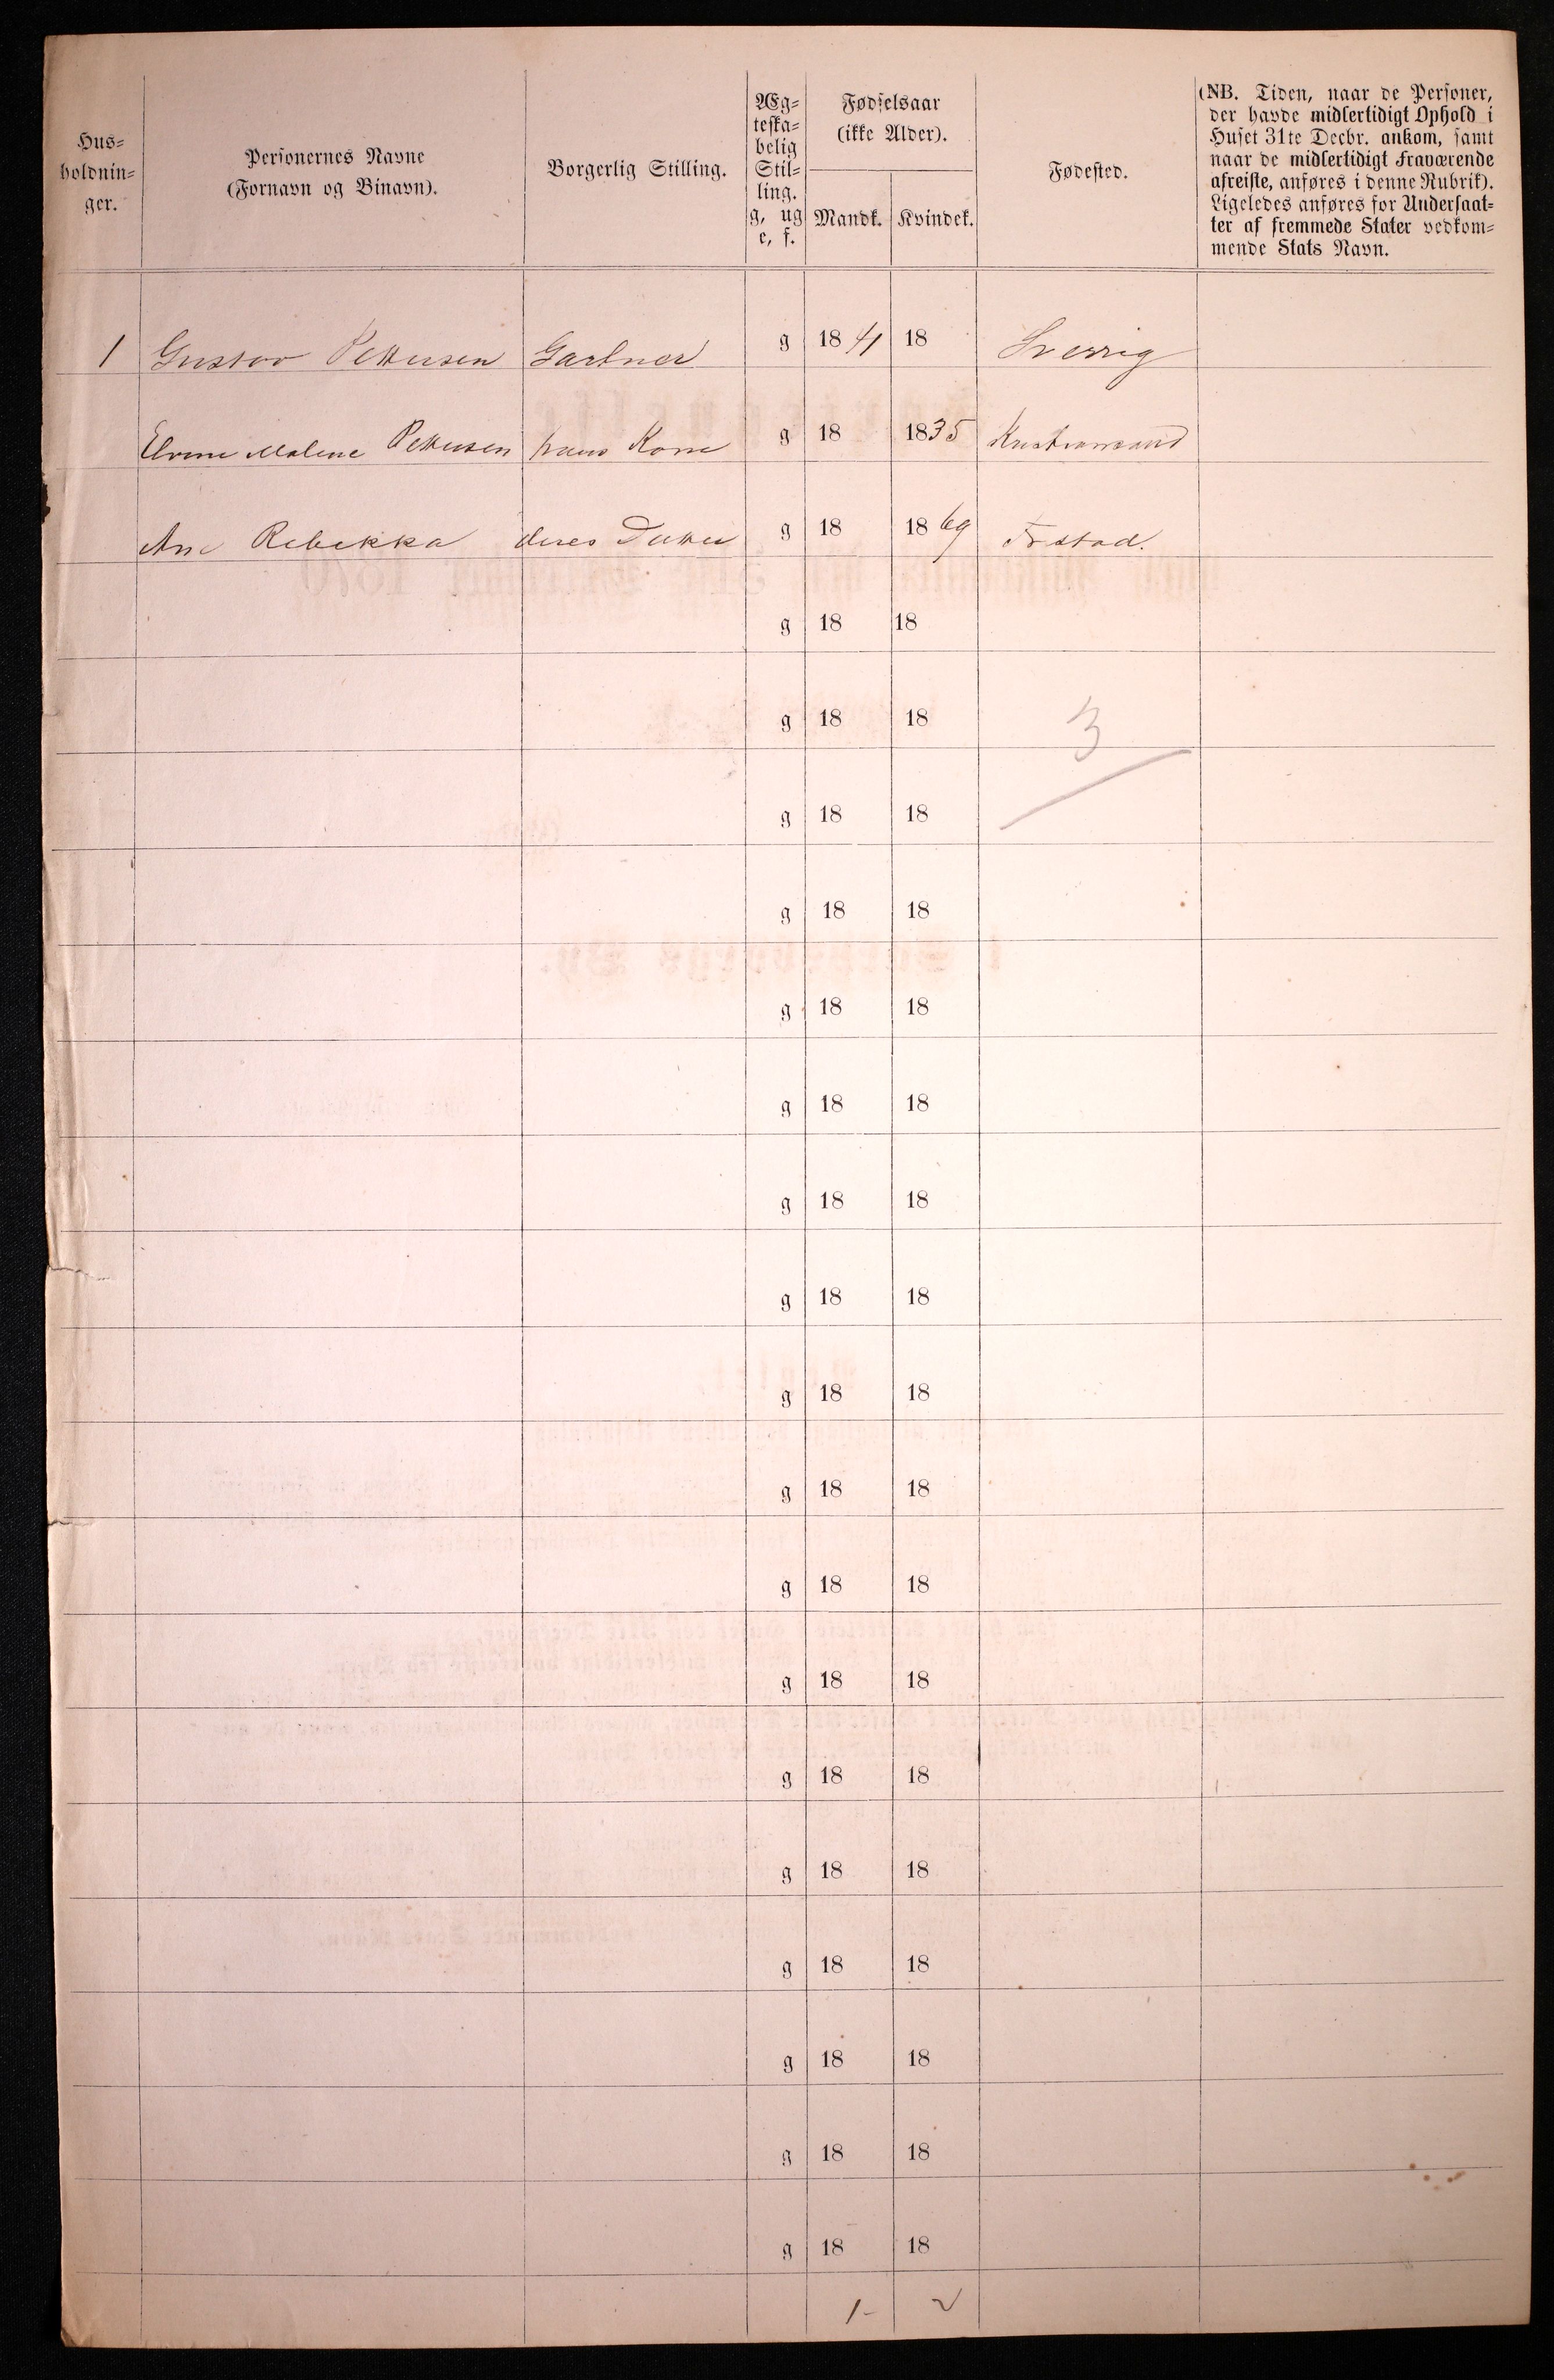 Hus-
holdnin-
ger.
Personernes Navne
(Fornavn og Binavn).
Borgerlig Stilling.
Æg-
teska-
belig
Stil-
ling.
g, ug
e, f.
Fødselsaar
(ikke Alder).
Mandk. Kvindek.
Fødested.
(NB. Tiden, naar de Personer,
der havde midlertidigt Ophold i
Huset 31te Decbr. ankom, samt
naar de midlertidigt Fraværende
afreiste, anføres i denne Rubrik).
Ligeledes anføres for Undersaat-
ter af fremmede Stater vedkom-
mende Stats Navn.
1 Gustav Pettersen Gartner g 1841 18 Sverrig
Malene Pettersen hans Kone g 18 1835 Kristiansand
Ane Rebekka deres Datter g 18 1869 Frstad.
g 18 18
g 18 18 3
g 18 18
g 18 18
g 18 18
g 18 18
g 18 18
g 18 18
g 18 18
g 18 18
g 18 18
g 18 18
g 18 18
g 18 18
g 18 18
g 18 18
g 18 18
g 18 18
1- 2